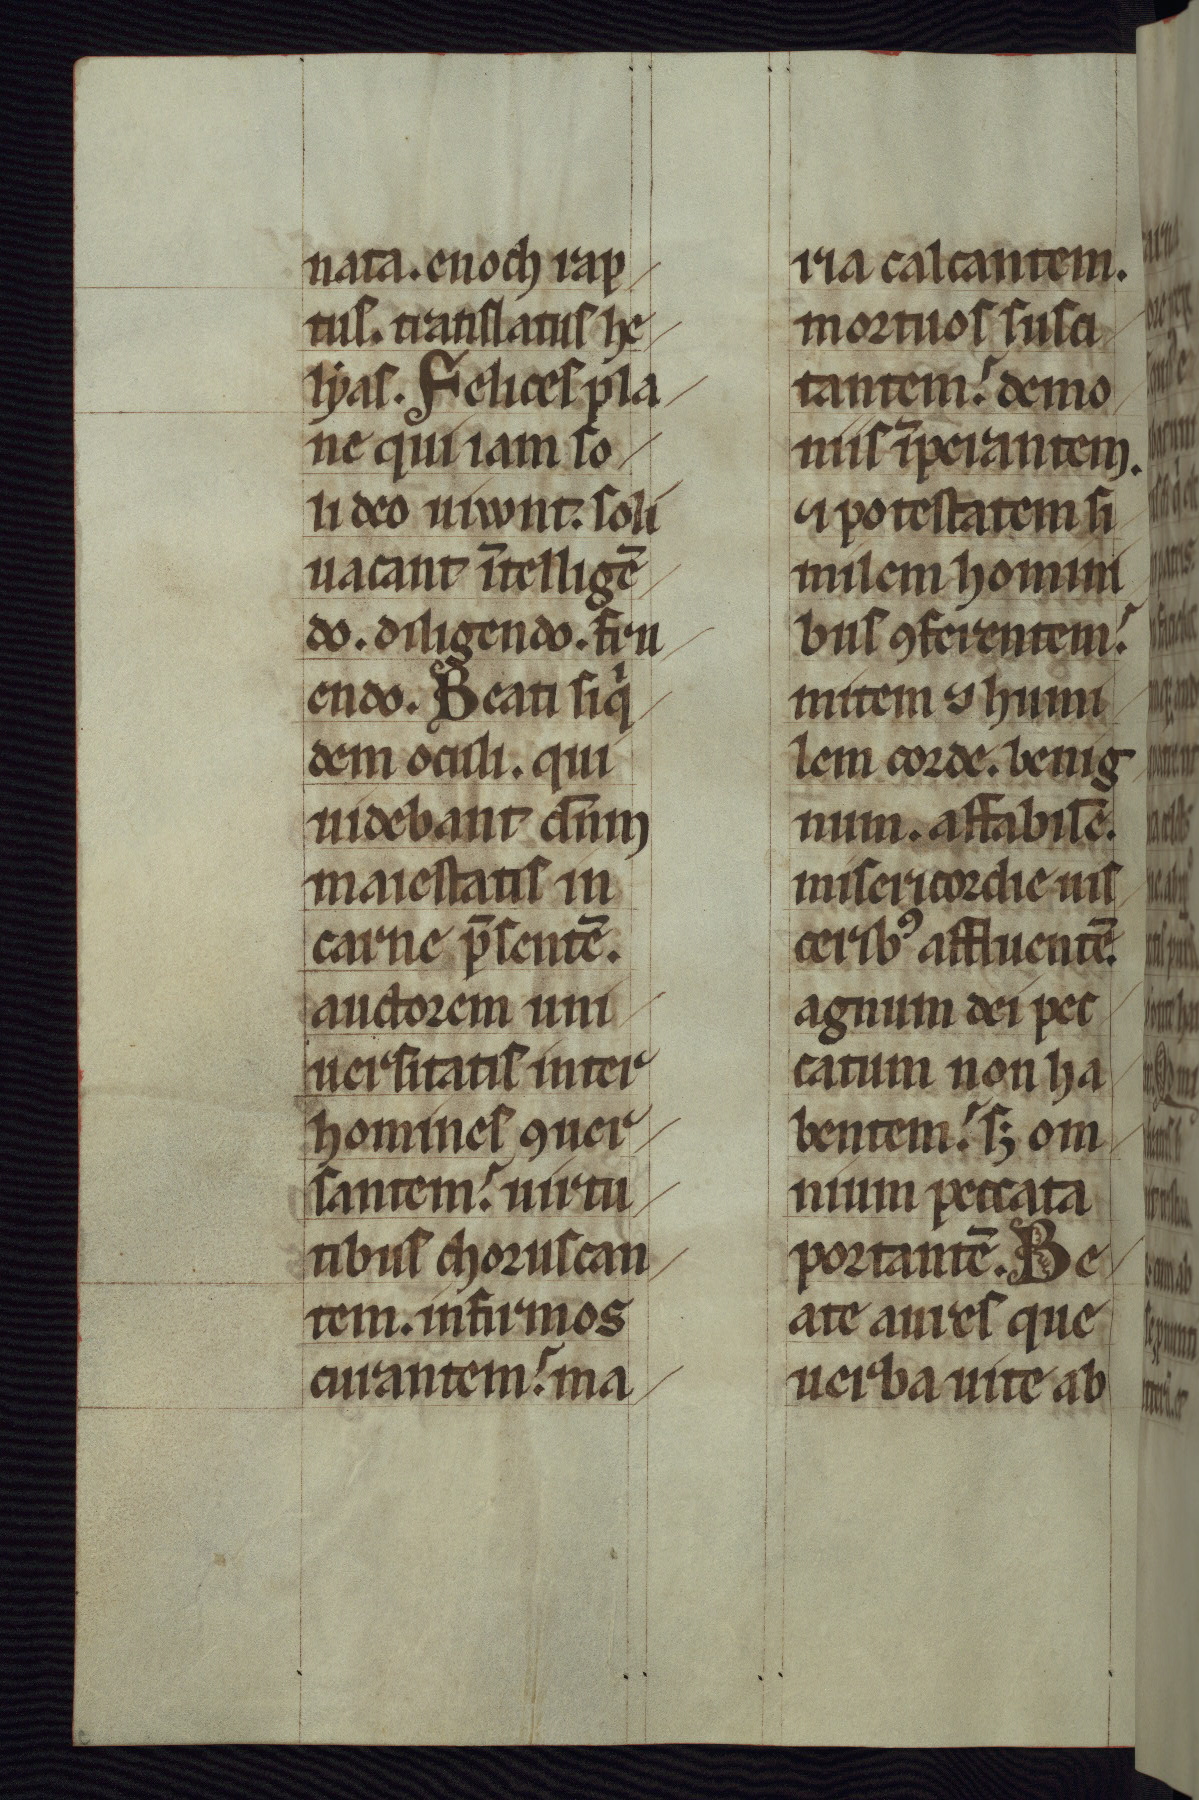 nata. enoch rap
tus. translatus he
lyas. Felices pla
ne qui iam so
li deo uiuunt. soli
uacant ītelligē
do. diligendo. fru
endo. Beati siqͥ
dem oculi. qui
uidebant dn̄m
maiestatis in
carne p̄sentē.
auctorem uni
uersitatis inter
homines ꝯuer
santem. uirtu
tibus choruscan
tem. infirmos
curantem. ma
ria calcantem.
mortuos susci
tantem. demo
niis īperantem.
⁊ potestatem si
milem homini
bus ꝯferentem.
mitem ⁊ humi
lem corde. benig
num. affabilē.
misericordie uis
ceribꝰ affluentē.
agnum dei pec
catum non ha
bentem. sꝫ om
nium peccata
portantē. Be
ate aures que
uerba uite ab